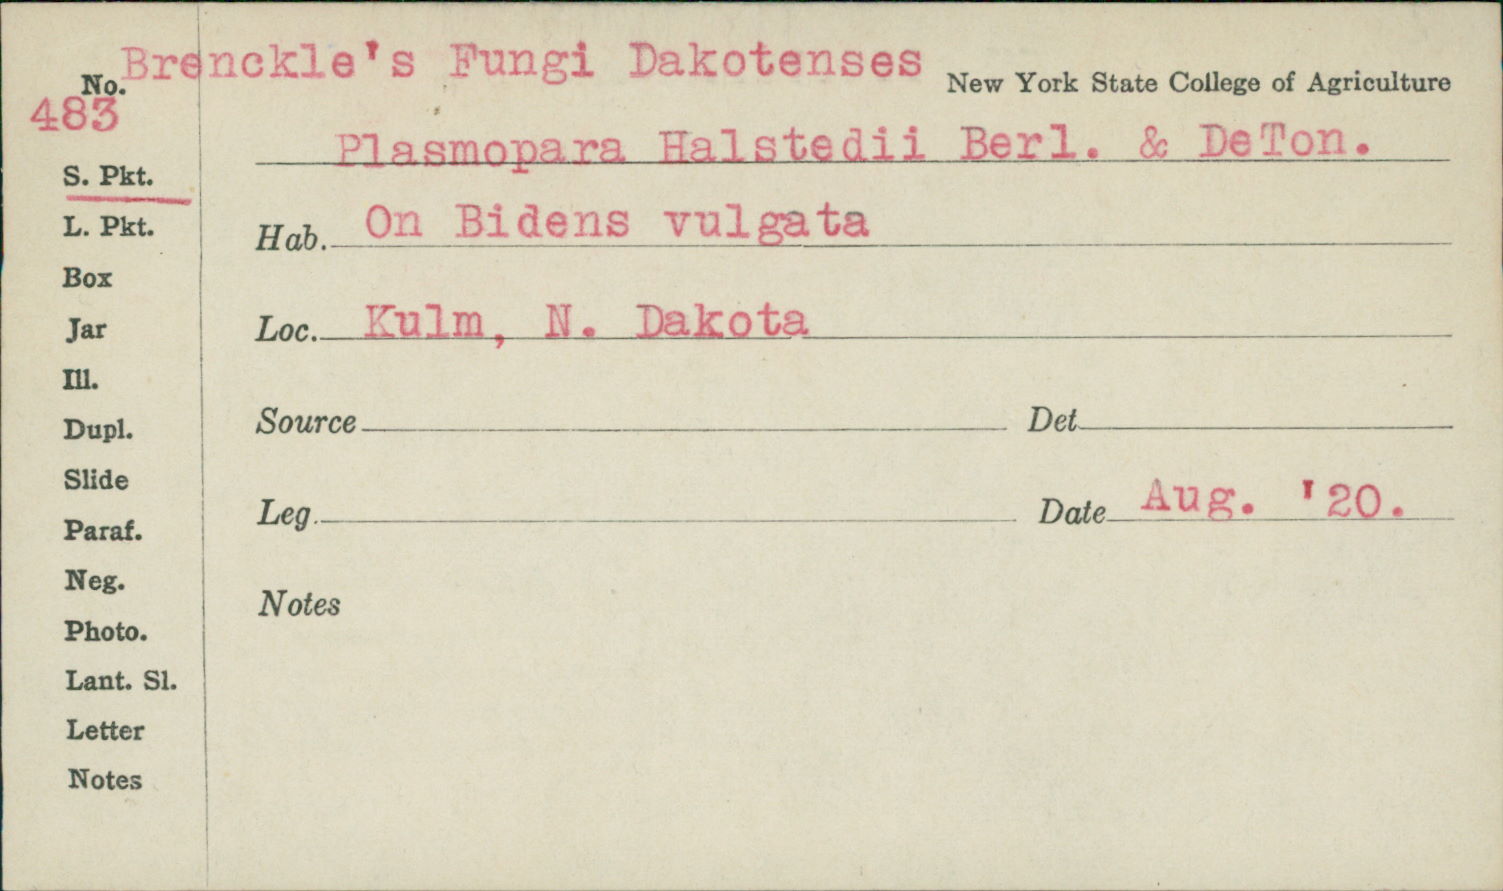 Brenckle's Fungi Dakotenses
No. New York State College of Agriculture
483
Plasmopara Halstedii Berl. & DeTon.
S. Pkt.
L. Pkt.
Hab. On Bidens vulgata
Box
Jar
Loc. Kulm, N. Dakota
Ill.
Dupl.
Source Det.
Slide
Leg. Date Aug. '20.
Paraf.
Neg.
Notes
Photo.
Lant. Sl.
Letter
Notes